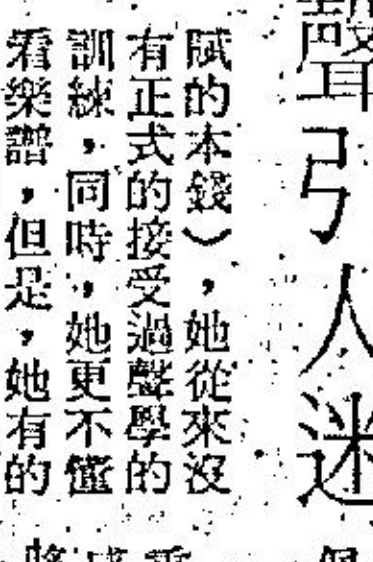 聲引人迷
賦的本錢），她從來沒
有正式的接受過聲學的
訓練，同時，她更不懂
看樂譜，但是，她有的